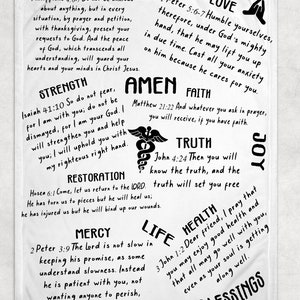 about anything, but in every
situation, by prayer and petition,
with thanksgiving, present your
requests to God. And the peace
of God, which transcends all
understanding, will guard your
hearts and your minds in Christ Jesus
LOVE
Peter 5:6-7 Humble yourselves,
therefore, under God's mighty
hand, that he may lift you up
in due time. Cast all your anxiety
on him because he cares for you.
STRENGTH
Isaiah 41:10 So do not fear,
for I am with you; do not be
dismayed, for I am your God. I
will strengthen you and help
you; I will uphold you with
my righteous right hand.
AMEN
FAITH
Matthew 21:22 And whatever you ask in prayer,
you will receive, if you have faith
JOY
TRUTH
John 4:24 Then you will
know the truth, and the
truth will set you free
RESTORATION
Hosea 6:1 Come, let us return to the LORD.
He has torn us to pieces but he will heal us;
he has injured us but he will bind up our wounds.
MERCY
2 Peter 3:9 The Lord is not slow in
keeping his promise, as some
understand slowness. Instead
he is patient with you, not
wanting anyone to perish,
LIFE
HEALTH
3 John 1:2 Dear friend, I pray that
you may enjoy good health and
that all may go well with you,
even as your soul is getting
along well.
BLESSINGS